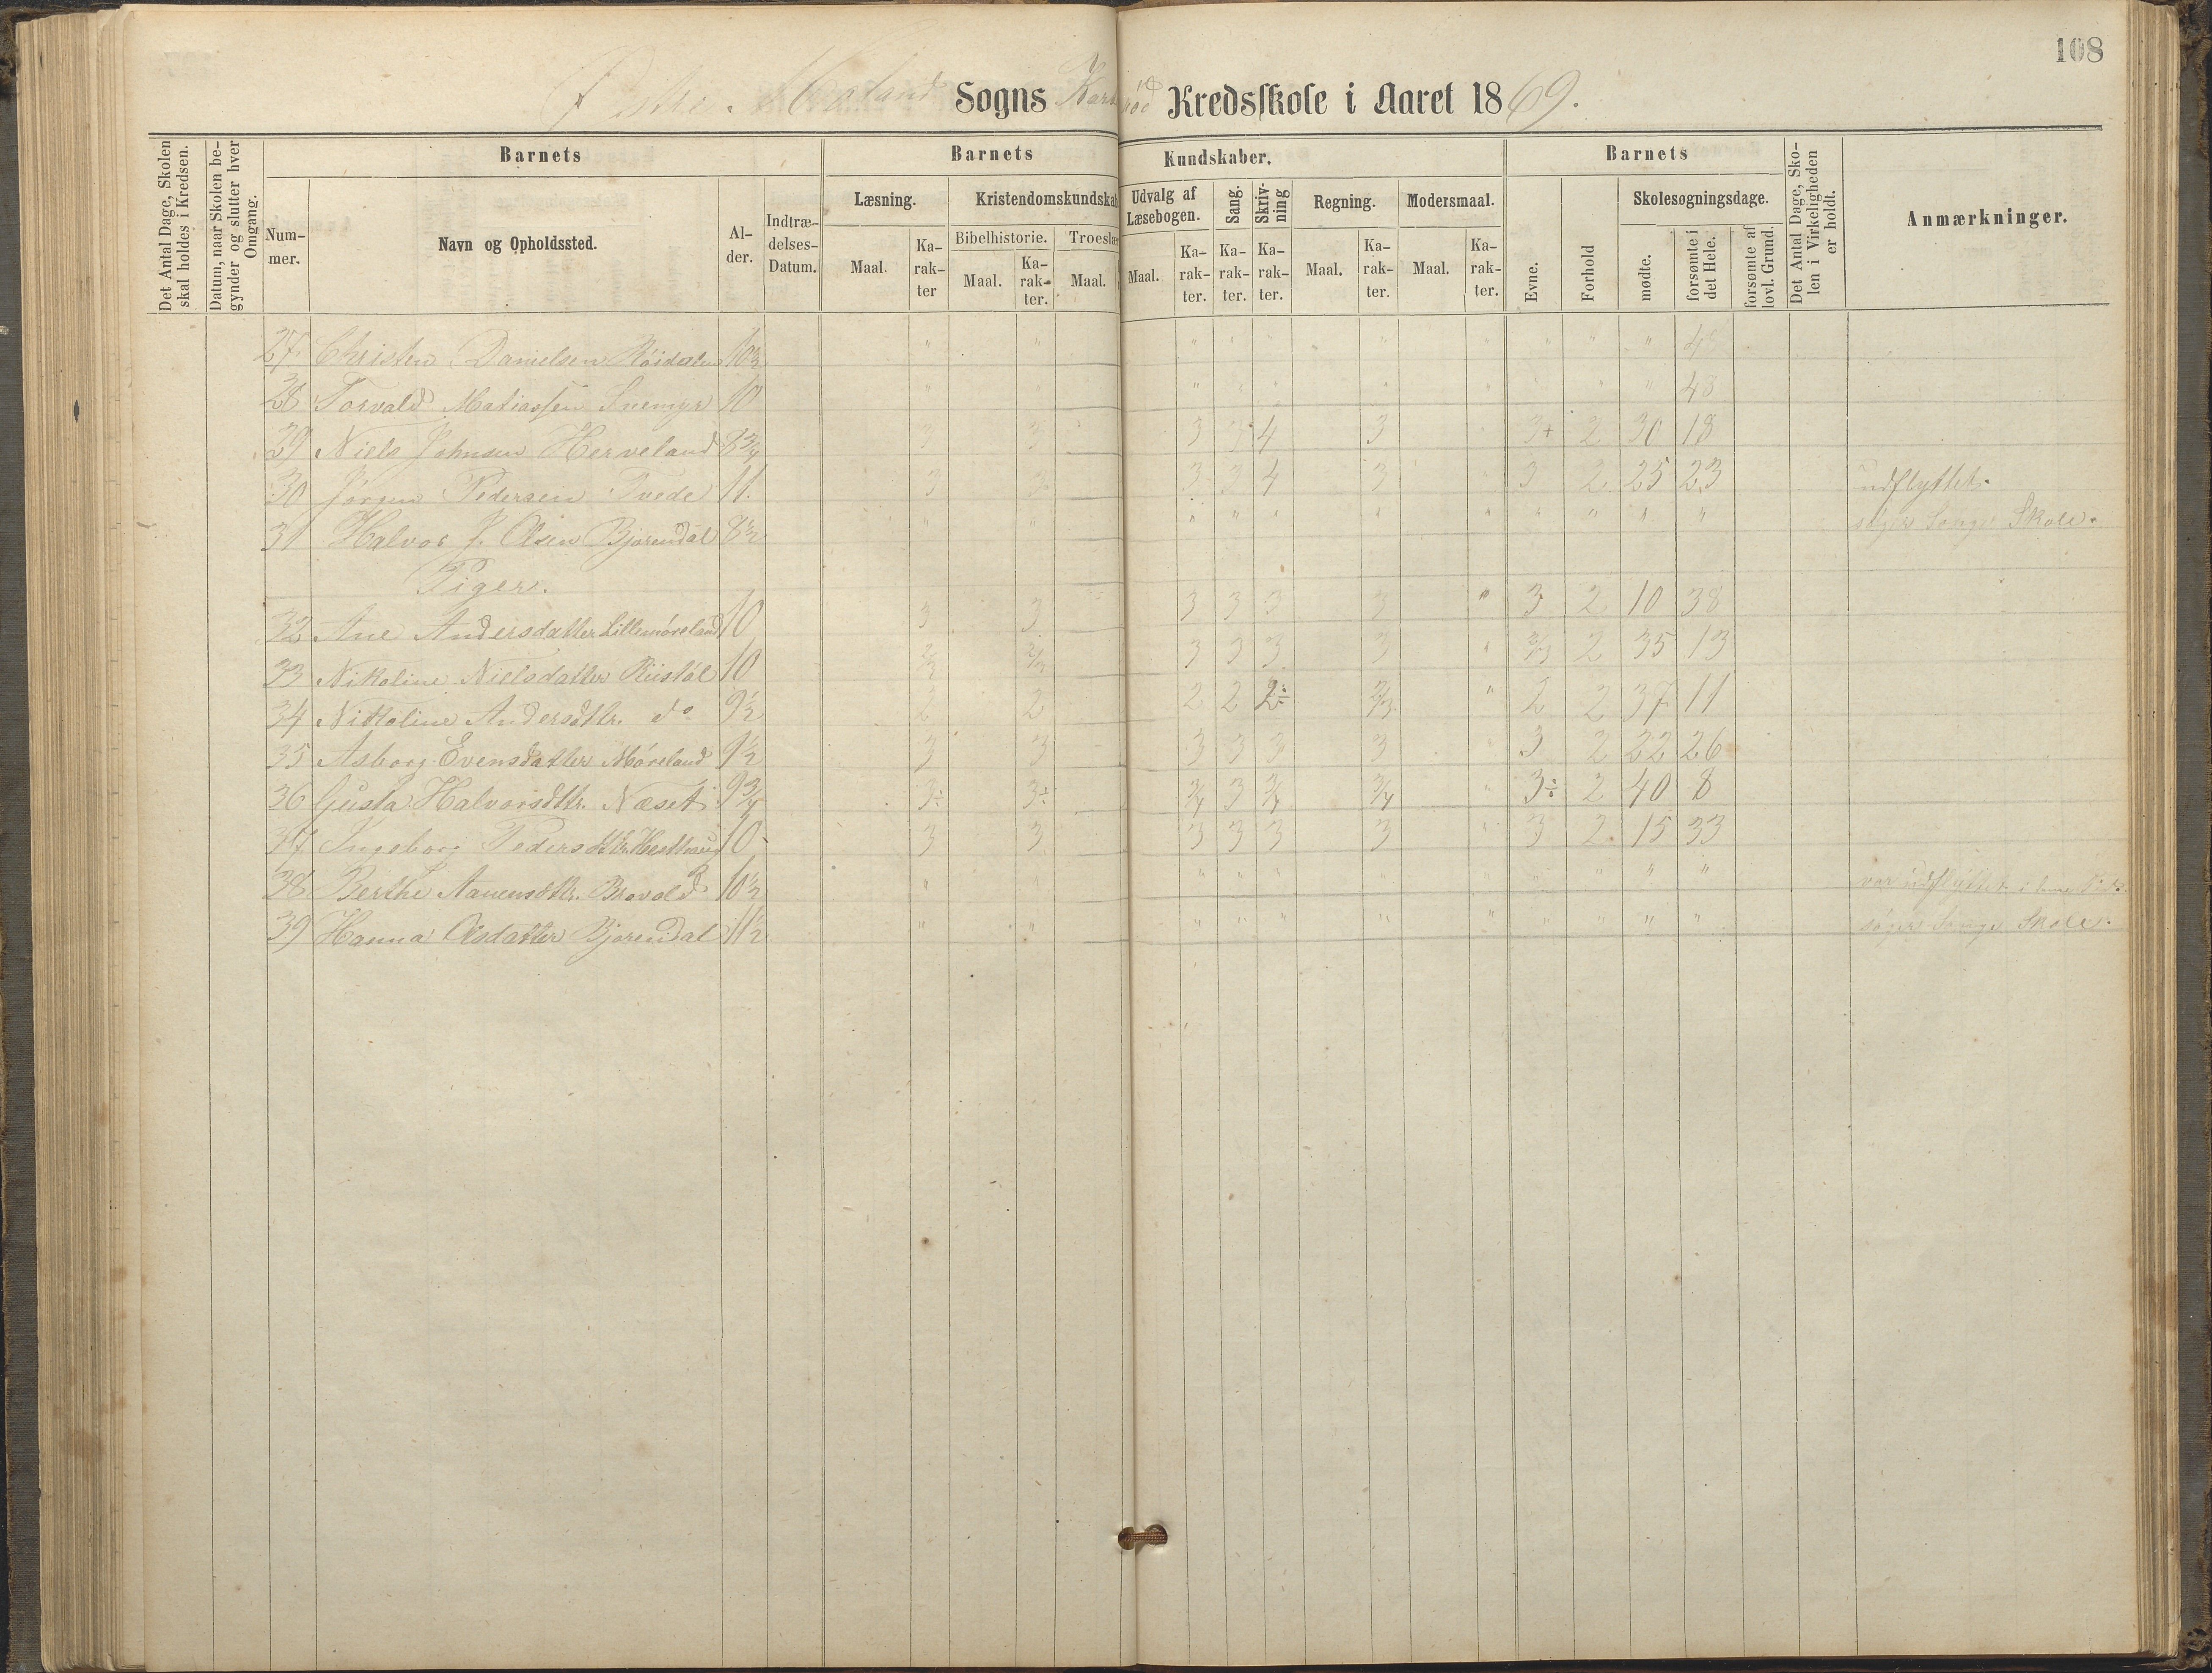 108
Østre Moland Sogns Kredsskole i Aaret 1869.
Det Antal Dage, Skolen skal holdes i Kredsen.
Datum, naar Skolen begynder og slutter hver Omgang.
Barnets
Nummer.
Navn og Opholdssted.
Alder.
Indtrædelses-Datum.
Barnets Kundskaber.
Læsning.
Maal.
Karakter
Kristendomskundskab
Bibelhistorie.
Maal.
Karakter.
Troeslære
Maal.
Udvalg af Læsebogen.
Maal.
Karakter.
Sang.
Karakter.
Skrivning
Karakter.
Regning.
Maal.
Karakter.
Modersmaal.
Maal.
Karakter.
Barnets
Evne.
Forhold
Skolesøgningsdage.
mødte.
forsømte i det Hele.
forsømte af lovl. Grund.
Det Antal Dage, Skolen i Virkeligheden er holdt.
Anmærkninger.
27 Christen Danielsen Röisdalen 10½ " " " " " " " " " " 48
28 Torvald Matiassen Snemyr 10 " " " " " " " " " 48
29 Niels Johnsen Herveland 8¾ 3 3 3 3 4 3 3+ 2 30 18
30 Jörgen Pedersen Tvede 11. 3 3 3 3 4 3 " 3 2 25 23 udflyttet.
31 Halvor J. Olsen Bjorendal 8½ " " " " " " " " " " " söger Songe Skole.
Piger.
32 Ane Andersdatter Lillemöreland 10 3 3 3 3 3 3 " 3 2 10 38
33 Nikoline Nielsdatter Riistöl 10 2/3 2/3 3 3 3 3 " 2/3 2 35 13
34 Nikoline Andersdttr. do 9½ 2 2 2 2 2÷ 2/3 " 2 2 37 11
35 Asborg Evensdatter Möreland 9½ 3 3 3 3 3 3 " 3 2 22 26
36 Gusta Halvorsdttr. Næset 9¾ 3÷ 3÷ 3/4 3 3/4 3/4 " 3÷ 2 40 8
37 Ingeborg Pedersdttr. Hesthaug 10 3 3 3 3 3 3 " 3 2 15 33
38 Berthe Aanensdttr. Bravold 10½ " " " " " " " " " " " var udflyttet i
39 Hanna Olsdatter Bjorendal 11½ " " " " " " " " " " " söger Songe Skole.